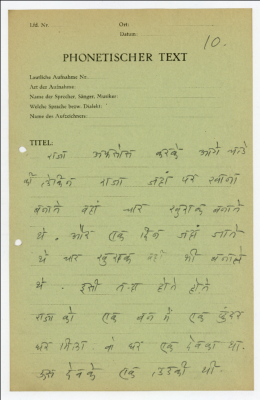 Lfd. Nr.
Ort:
Datum:
10.
PHONETISCHER TEXT
Lautliche Aufnahme Nr.
Art der Aufnahme:
Name der Sprecher, Sänger, Musiker:
Welche Sprache bezw. Dialekt:
Name des Aufzeichners:
TITEL:
राजा अफसोस करके आगे
को लेकिन राजा जहां पर खाना
बनाते वहां चार खुराक बनाते
थे. और एक दिन जहां जाते
थे चार खुराक वहां भी बनाते
थे. इसी होते होते
राजा को एक बन में एक सुंदर
घर मिला. वे घर एक देवका था.
उस देवके एक लडकी थी.